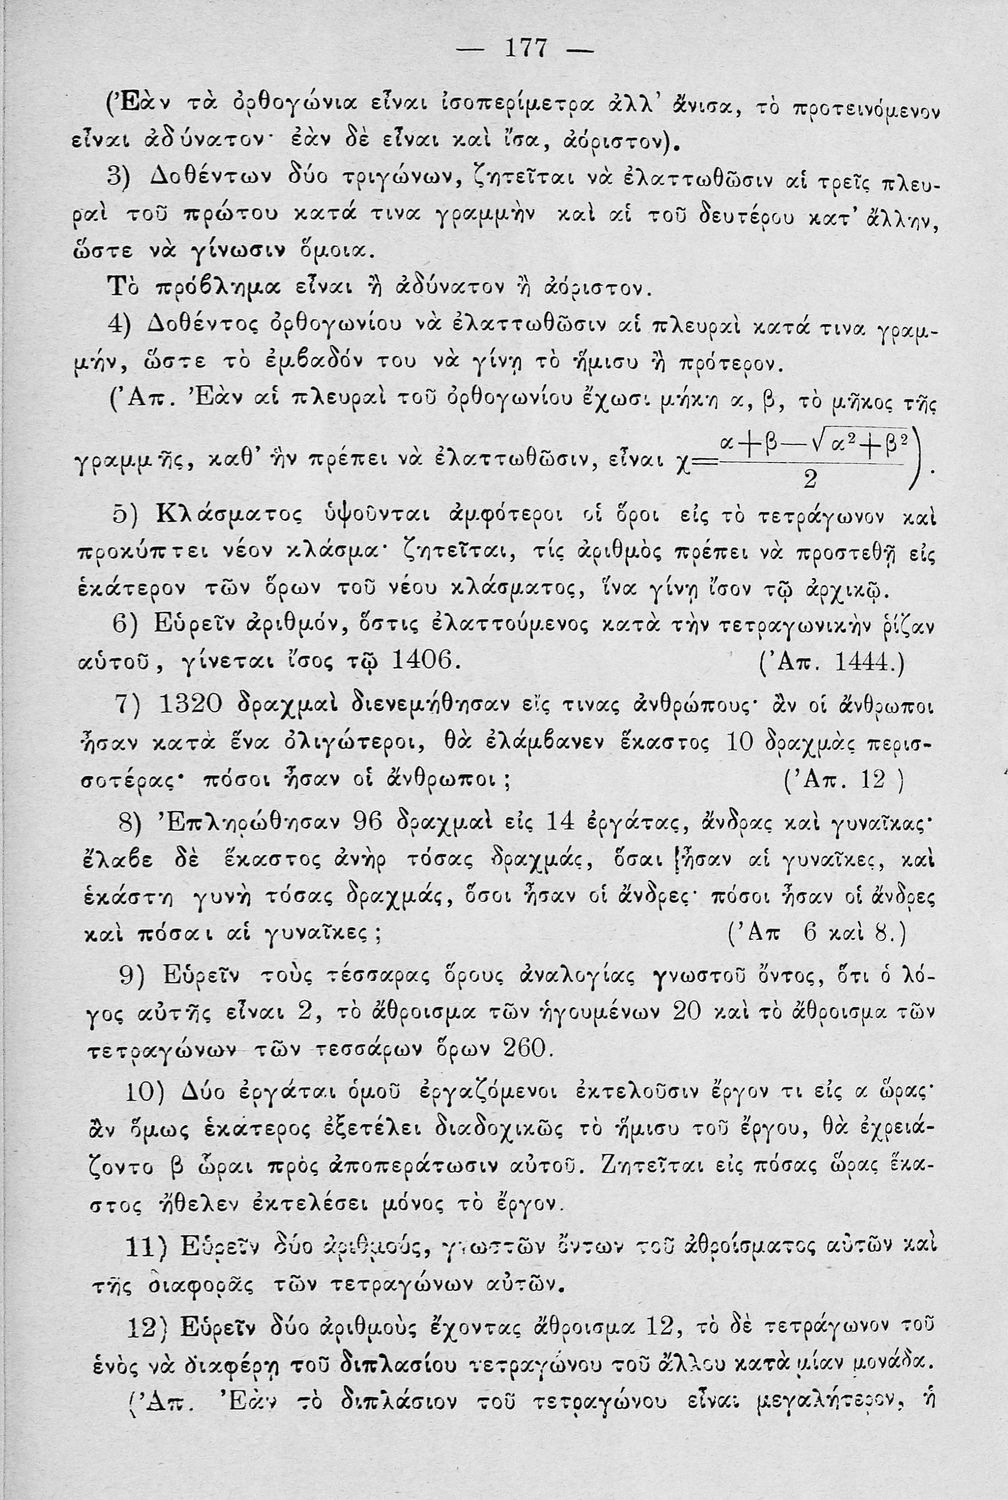 — 177 —
(Ἐὰν τὰ ὀρθογώνια εἶναι ἰσοπερίμετρα ἀλλ’ ἄνισα, τὸ προτεινόμενον
εἶναι ἀδύνατον· ἐὰν δὲ εἶναι καὶ ἴσα, ἀόριστον).
3) Δοθέντων δύο τριγώνων, ζητεῖται νὰ ἐλαττωθῶσιν αἱ τρεῖς πλευ-
ραὶ τοῦ πρώτου κατά τινα γραμμὴν καὶ αἱ τοῦ δευτέρου κατ’ ἄλλην,
ὥστε νὰ γίνωσιν ὅμοια.
Τὸ πρόβλημα εἶναι ἢ ἀδύνατον ἢ ἀόριστον.
4) Δοθέντος ὀρθογωνίου νὰ ἐλαττωθῶσιν αἱ πλευραὶ κατά τινα γραμ-
μήν, ὥστε τὸ ἐμβαδόν του νὰ γίνῃ τὸ ἥμισυ ἢ πρότερον.
(Ἀπ. Ἐὰν αἱ πλευραὶ τοῦ ὀρθογωνίου ἔχωσι μήκη α, β, τὸ μῆκος τῆς
γραμμῆς, καθ’ ἣν πρέπει νὰ ἐλαττωθῶσιν, εἶναι χ=(α+β—√α²+β²)/2).
5) Κλάσματος ὑψοῦνται ἀμφότεροι οἱ ὅροι εἰς τὸ τετράγωνον καὶ
προκύπτει νέον κλάσμα· ζητεῖται, τίς ἀριθμὸς πρέπει νὰ προστεθῇ εἰς
ἑκάτερον τῶν ὅρων τοῦ νέου κλάσματος, ἵνα γίνῃ ἴσον τῷ ἀρχικῷ.
6) Εὑρεῖν ἀριθμόν, ὅστις ἐλαττούμενος κατὰ τὴν τετραγωνικὴν ῥίζαν
αὑτοῦ, γίνεται ἴσος τῷ 1406. (Ἀπ. 1444.)
7) 1320 δραχμαὶ διενεμήθησαν εἴς τινας ἀνθρώπους· ἂν οἱ ἄνθρωποι
ἦσαν κατὰ ἕνα ὀλιγώτεροι, θὰ ἐλάμβανεν ἕκαστος 10 δραχμὰς περισ-
σοτέρας· πόσοι ἦσαν οἱ ἄνθρωποι; (Ἀπ. 12 )
8) Ἐπληρώθησαν 96 δραχμαὶ εἰς 14 ἐργάτας, ἄνδρας καὶ γυναῖκας·
ἔλαβε δὲ ἕκαστος ἀνὴρ τόσας δραχμάς, ὅσαι ἦσαν αἱ γυναῖκες, καὶ
ἑκάστη γυνὴ τόσας δραχμάς, ὅσοι ἦσαν οἱ ἄνδρες· πόσοι ἦσαν οἱ ἄνδρες
καὶ πόσαι αἱ γυναῖκες; (Ἀπ 6 καὶ 8.)
9) Εὑρεῖν τοὺς τέσσαρας ὅρους ἀναλογίας γνωστοῦ ὄντος, ὅτι ὁ λό-
γος αὐτῆς εἶναι 2, τὸ ἄθροισμα τῶν ἡγουμένων 20 καὶ τὸ ἄθροισμα τῶν
τετραγώνων τῶν τεσσάρων ὅρων 260.
10) Δύο ἐργάται ὁμοῦ ἐργαζόμενοι ἐκτελοῦσιν ἔργον τι εἰς α ὥρας·
ἂν ὅμως ἑκάτερος ἐξετέλει διαδοχικῶς τὸ ἥμισυ τοῦ ἔργου, θὰ ἐχρειά-
ζοντο β ὧραι πρὸς ἀποπεράτωσιν αὐτοῦ. Ζητεῖται εἰς πόσας ὥρας ἕκα-
στος ἤθελεν ἐκτελέσει μόνος τὸ ἔργον.
11) Εὑρεῖν δύο ἀριθμούς, γνωστῶν ὄντων τοῦ ἀθροίσματος αὐτῶν καὶ
τῆς διαφορᾶς τῶν τετραγώνων αὐτῶν.
12) Εὑρεῖν δύο ἀριθμοὺς ἔχοντας ἄθροισμα 12, τὸ δὲ τετράγωνον τοῦ
ἑνὸς νὰ διαφέρῃ τοῦ διπλασίου τετραγώνου τοῦ ἄλλου κατὰ μίαν μονάδα.
(Ἀπ. Ἐὰν τὸ διπλάσιον τοῦ τετραγώνου εἶναι μεγαλήτερον, ἡ